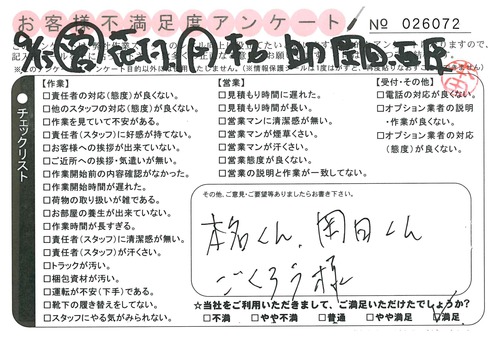 お客様不満足度アンケート
No 026072
【作業】
□責任者の対応(態度)が良くない。
□他のスタッフの対応(態度)が良くない。
□作業を見ていて不安がある。
□責任者(スタッフ)に好感が持てない。
□お客様への挨拶が出来ていない。
□ご近所への挨拶・気遣いが無い。
□作業開始前の内容確認がなかった。
□作業開始時間が遅れた。
□荷物の取り扱いが雑である。
□お部屋の養生が出来ていない。
□作業時間が長すぎる。
□責任者(スタッフ)に清潔感が無い。
□責任者(スタッフ)が汗くさい。
□トラックが汚い。
□梱包資材が汚い。
□運転が不安(下手)である。
□靴下の履き替えをしてない。
□スタッフにやる気がみられない。
【営業】
□見積もり時間に遅れた。
□見積もり時間が長い。
□営業マンに清潔感が無い。
□営業マンが煙草くさい。
□営業マンが汗くさい。
□営業態度が良くない。
□営業の説明と作業が一致してない。
【受付・その他】
□電話の対応が良くない。
□オプション業者の説明
・作業が良くない。
□オプション業者の対応
(態度)が良くない。
チェックリスト
その他、ご意見・ご要望等ありましたらお書き下さい。
本名くん、岡田くん
ごくろう様
☆当社をご利用いただきまして、ご満足いただけたでしょうか?
□不満 □やや不満 □普通 □やや満足 □満足